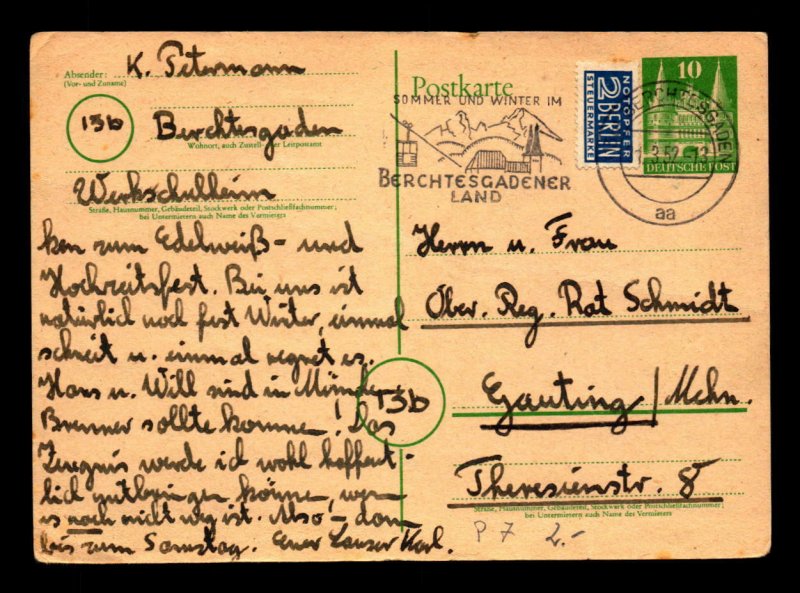 Absender: K. Petermann
(Vor- und Zuname)
13b
Berchtesgaden
Wohnort, auch Zustell- oder Leitpostamt
Werkschulheim
Straße, Hausnummer, Gebäudeteil, Stockwerk oder Postschließfachnummer;
bei Untermietern auch Name des Vermieters
ken zum Edelweiß- und
Hochzeitsfest. Bei uns ist
natürlich noch fest Winter, einmal
schneit u. einmal regnet es.
Hans u. Will sind in München
Brenner sollte komme! Das
Zeugnis werde ich wohl hoffent-
lich gutbringen könne, wenn
es noch nicht weg ist. Also – dann
bis zum Samstag. Euer Karl.
Postkarte
SOMMER UND WINTER IM
BERCHTESGADENER
LAND
NOTOPFER
2 BERLIN
STEUERMARKE
10
DEUTSCHE POST
BERCHTESGADEN
3.52.-13
aa
Herrn u. Frau
Ober. Reg. Rat Schmidt
13b
Gauting / Mchn.
Theresienstr. 8
Straße, Hausnummer, Gebäudeteil, Stockwerk oder Postschließfachnummer;
bei Untermietern auch Name des Vermieters
P 7 2.-